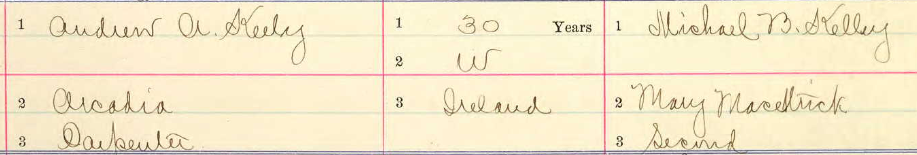 1 Andrew A. Keely 1 30 Years 1 Michael B. Kelley
2 W
2 Arcadia 3 Ireland 2 Mary
3 Carpenter 3 Second